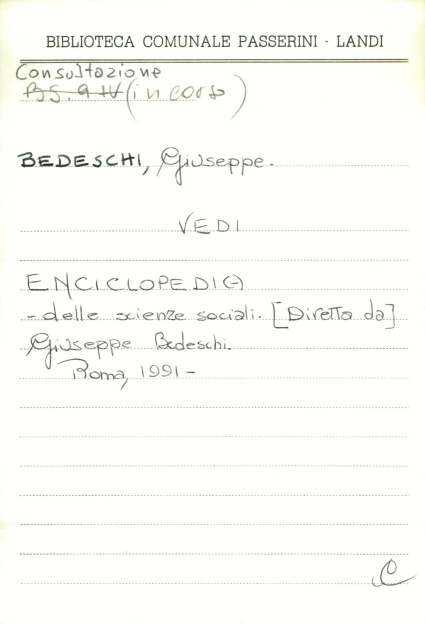 BIBLIOTECA COMUNALE PASSERINI - LANDI
Consultazione
BS. 9 IV (in corso)
BEDESCHI, Giuseppe.
VEDI
ENCICLOPEDI(A)
- delle scienze sociali. [Diretto da]
Giuseppe Bedeschi.
Roma, 1991 -
C